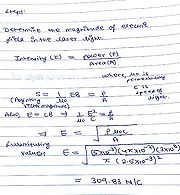 Steps:
Determine the magnitude of electric
field in the laser light.
Intensity (I) = power (P) / area (A)
where, μ₀ is
permeability
c is
speed of
light.
S = 1/μ₀ EB = P/A
(Poynting
vector magnitude)
Also, E = cB → 1/μ₀ E²/c = P/A
⇒ E = √(P μ₀c / A)
Substituting
values: E = √((5×10⁻³)(4π×10⁻⁷)(3×10⁸) / π (2.5×10⁻³)²)
= 309.83 N/C